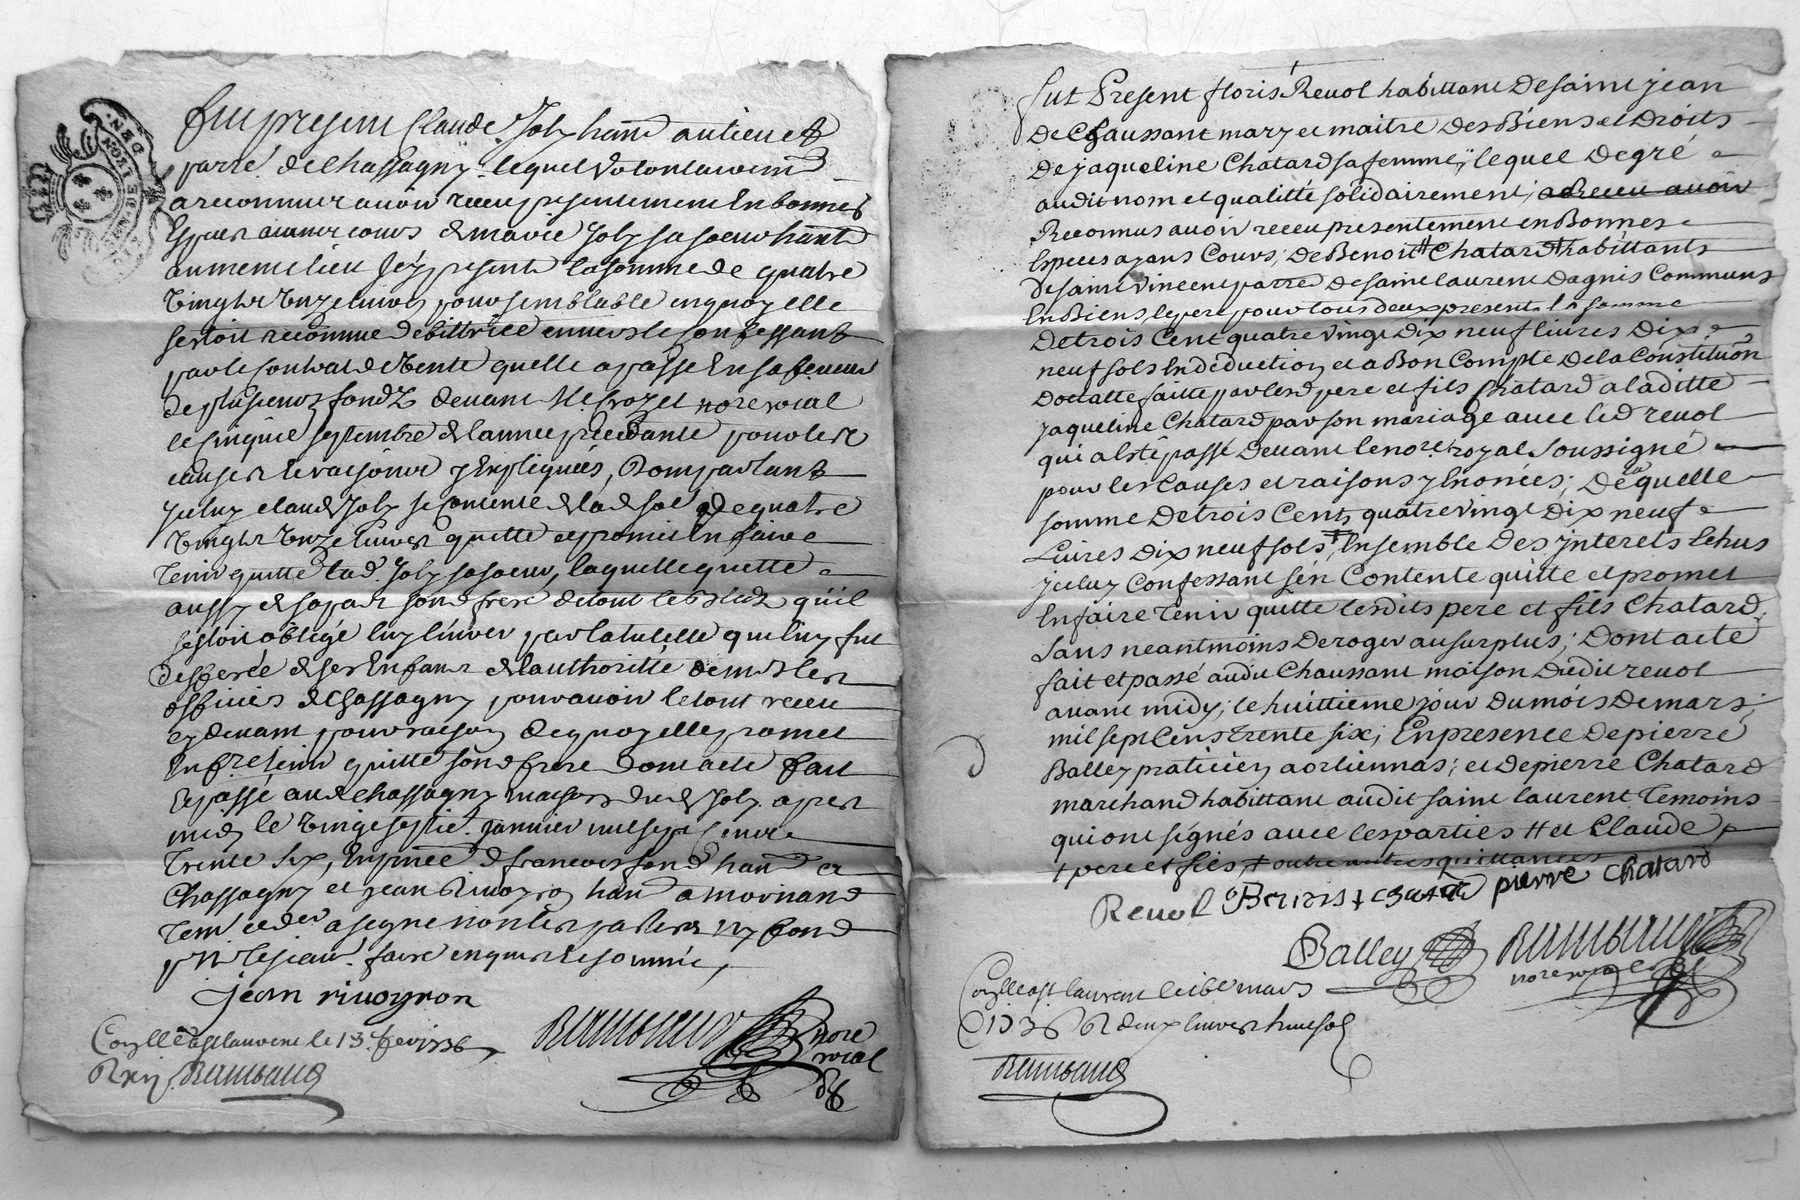 GEN. DE LION
fut present Claude Joly hant au lieu et
parre. de Chassagny. lequel Volontairemt
a reconnu et avoir receu presentement En bonnes
Especes aiant cours de marie Joly sa soeur hante
au meme lieu Jcy presente la somme de quatre
Vingts Unze livres pour semblable en quoy elle
sestoit reconnue debittrice envers le Confessant
par le Contrat de Vente quelle a passé En sa faveur
de plusieurs fondz devant Me Crozet nore roial
le cinquie septembre de lannee precedante pour les
causes et raisons y Expliquées, Dompartant
jceluy claude Joly se contente de lad so de quatre
Vingts Unze livres quitte et promis En faire
Tenir quitte lad. Joly sa soeur, laquelle quitte
aussy de sa part sond frere de tout le qu'il
s'estoit obligé luy livrer par la tutelle qui luy fut
defferée de ses Enfans de lauthorité de mrs les
officiers de Chassagny pour avoir le tout receu
cy devant pour raison de quoy elle promet
En fre tenir quitte sond frere dont acte fait
Et passé aud Chassagny maison dud Joly apres
midy le Vingt septie. Janvier mil sept Cent
Trente Six, En pnce de francois fond hant a
Chassagny et jean Rivoyron hant a mornand
Tem
jean rivoyron
Conllé a st laurent le 13e fev 1736
Rxij Rambaud
Rambaud nore
roial
fut Present floris Revol habittant de saint jean
de Chaussant mary et maitre des Biens et Droits
de jaqueline Chatard sa femme, lequel de gré
audit nom et qualitté solidairement, a Receu avoir
Reconnus avoir receu presentement en Bonnes
Especes ayans Cours, de Benoit # Chatard # habittants
de saint vincent parre de saint laurent dagnis Communs
En Biens, le pere pour tous deux present, la somme
de trois Cent quatre vingt dix neuf livres dix
neuf sols En deduction, et a Bon Compte de la Constitution
Dotalle faitte par lesd pere et fils Chatard a laditte
jaqueline Chatard par son mariage avec led revol
qui a lsté passé Devant le nore royal soussigné
pour les Causes et raisons y Enoncées; De la quelle
somme de trois Cent, quatre vingt Dix neuf
Livres Dix neuf sols, # Ensemble des jnterets Echus
jceluy Confessant sen Contente quitte et promet
En faire Tenir quitte lesdits pere et fils Chatard,
sans neantmoins Deroger au surplus; Dont acte
fait et passé audit Chaussant maison Dudit revol
avant midy; le huittieme jour Du mois de mars,
mil sept Cens trente six; En presence de pierre
Balley praticien, a orliennas; et de pierre Chatard
marchand habittant audit saint laurent Temoins
qui ont signés avec les parties # et Claude
+ pere et fils, # outre autres quittances
Revol Benois + chatard pierre Chatard
Balley Rambaud
nore royal
Conllé a st laurent le 18e mars
1736 R deux livres huit sol
Rambaud